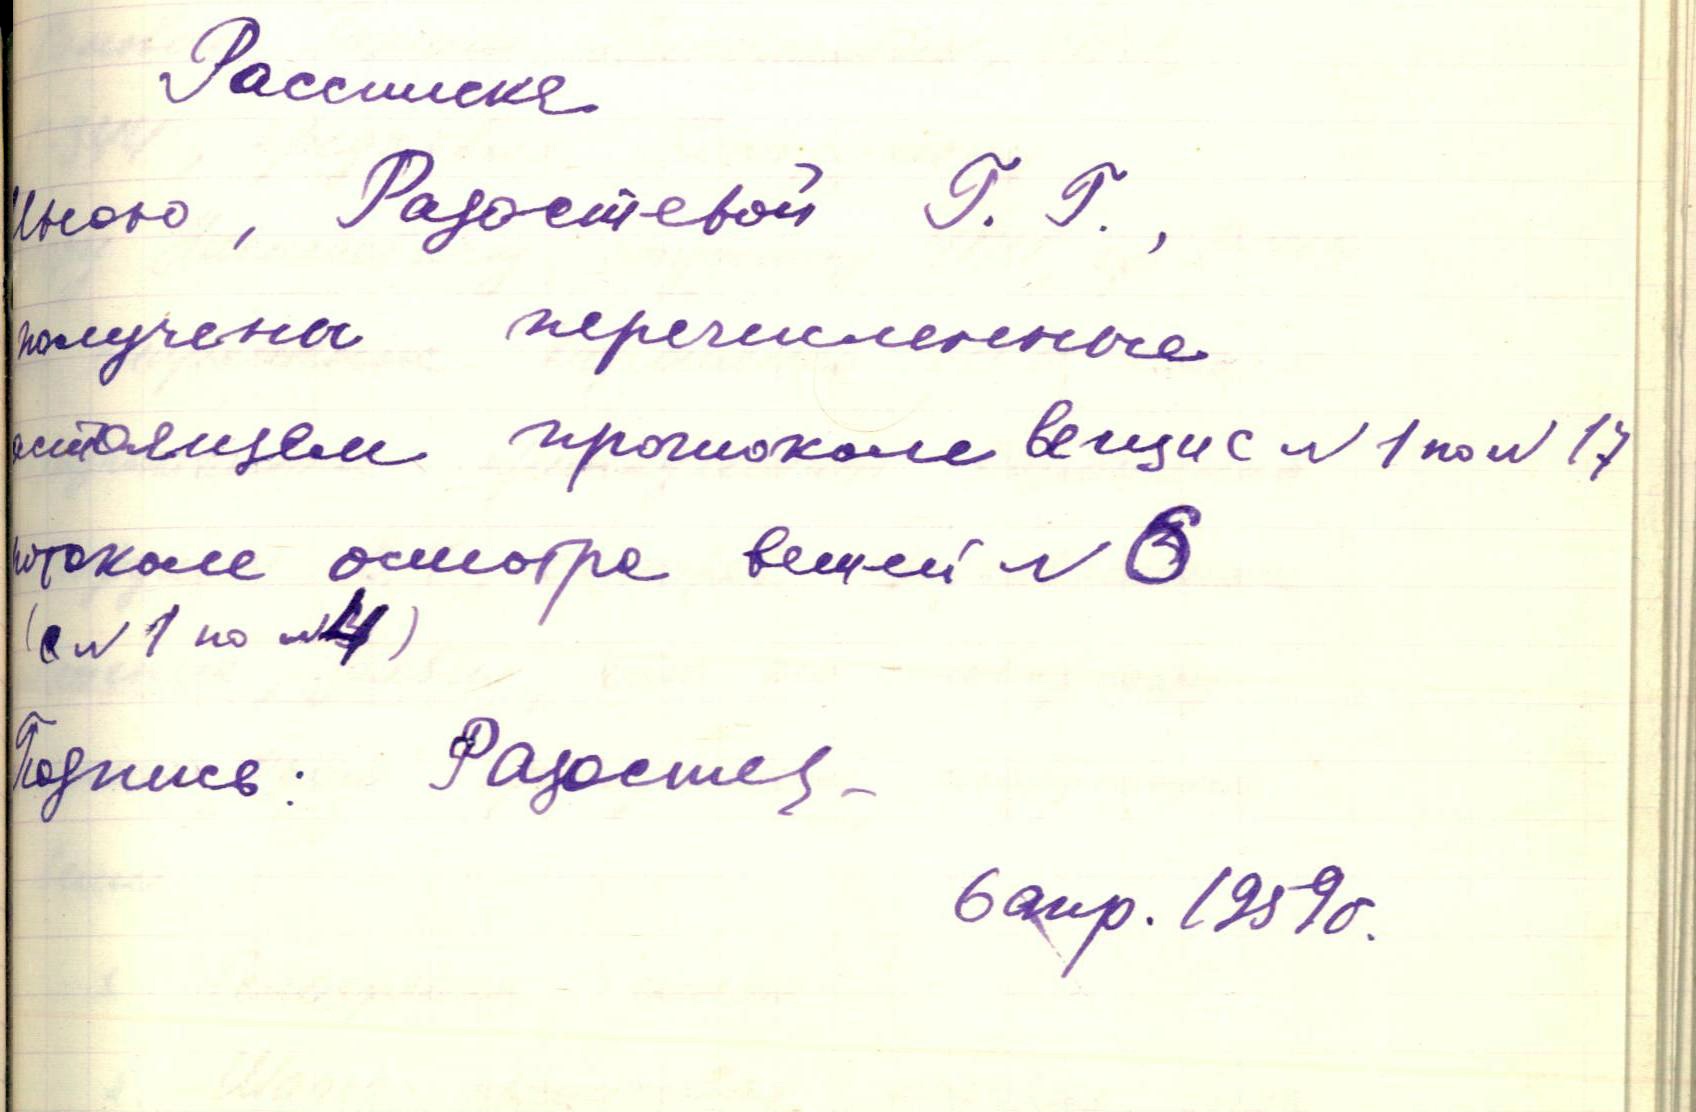 Рассписка
Мною, Радостевой Г. Г.,
получены перечисленные
астоящем протоколе вещи с N 1 по N 17
отоколе осмотра вещей N 6
(с N 1 по N 4)
Подпись: Радостев
6 апр. 1959г.